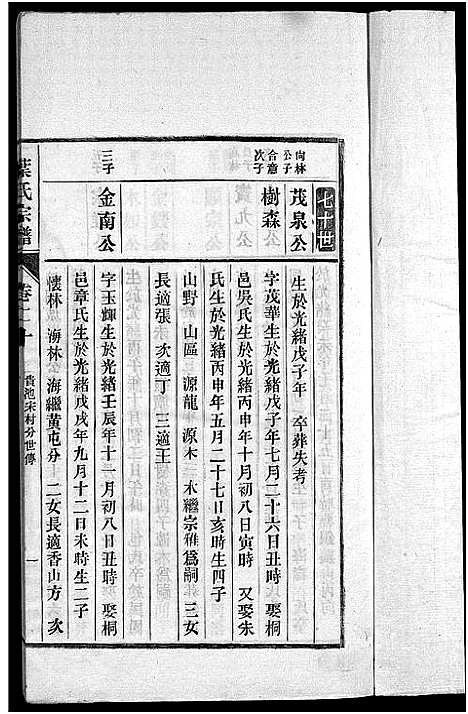 七十世
向林公子
茂泉公
生於光緒戊子年 卒葬失考
合意次子
樹森公
字茂華生於光緒戊子年七月二十六日丑時 娶桐
邑吳氏生於光緒丙申年十月初八日寅時 又娶朱
氏生於光緒丙申年五月二十七日亥時生四子
山野 山區 源龍 源木 三水繼宗雅爲嗣 三女
長適張 次適丁 三適王
三子
金南公
字玉輝生於光緒壬辰年十一月初八日丑時 娶桐
邑章氏生於光緒戊戌年九月十二日未時生二子
懷林 海林 海繼黃屯分 二女長適香山方 次
葉氏宗譜
卷二十
貴池宋村分世傳
一